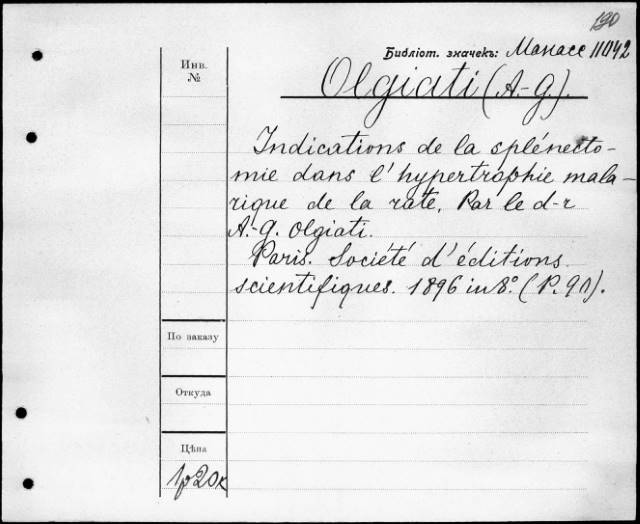 190
Библіот. значекъ: Манасе 11042
Инв.
№
Olgiati (A.-G).
Indications de la splénecto-
mie dans l'hypertrophie mala-
rique de la rate. Par le d-r
A.-G. Olgiati.
Paris. Société d'éditions
scientifiques. 1896 in 8.° (P. 90).
По заказу
Откуда
Цѣна
1р20к